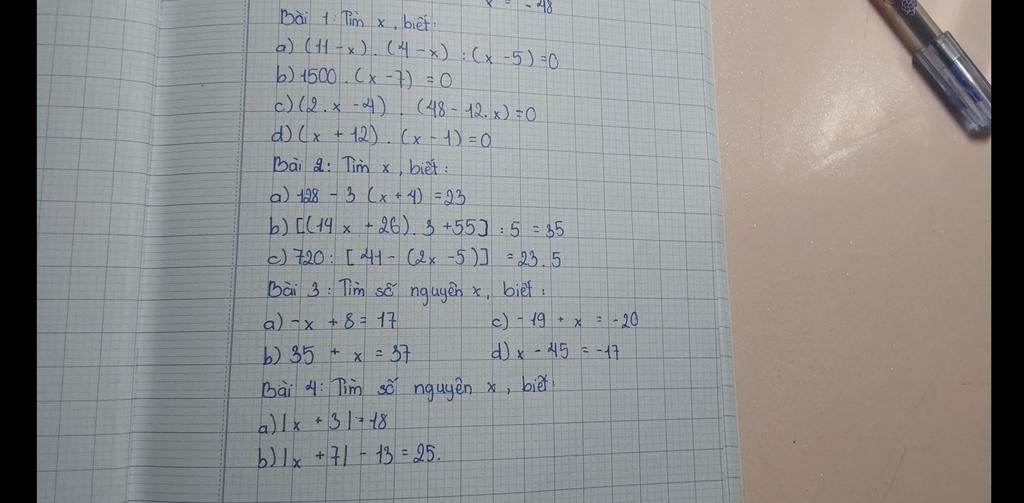 x = -48
Bài 1: Tìm x, biết:
a) (11-x). (4-x) : (x -5) =0
b) 1500. (x -7) = 0
c) (2. x -4) . (48 - 12. x) =0
d) (x + 12) . (x - 1) =0
Bài 2: Tìm x, biết:
a) 128 - 3 (x+4) =23
b) [(14x + 26). 3 +55] : 5 = 35
c) 720: [41- (2x -5)] = 23. 5
Bài 3: Tìm số nguyên x, biết:
a) -x + 8 = 17 c) -19 + x = -20
b) 35 + x = 37 d) x - 45 = -17
Bài 4: Tìm số nguyên x, biết:
a) |x + 3| = 18
b) |x + 7| - 13 = 25.